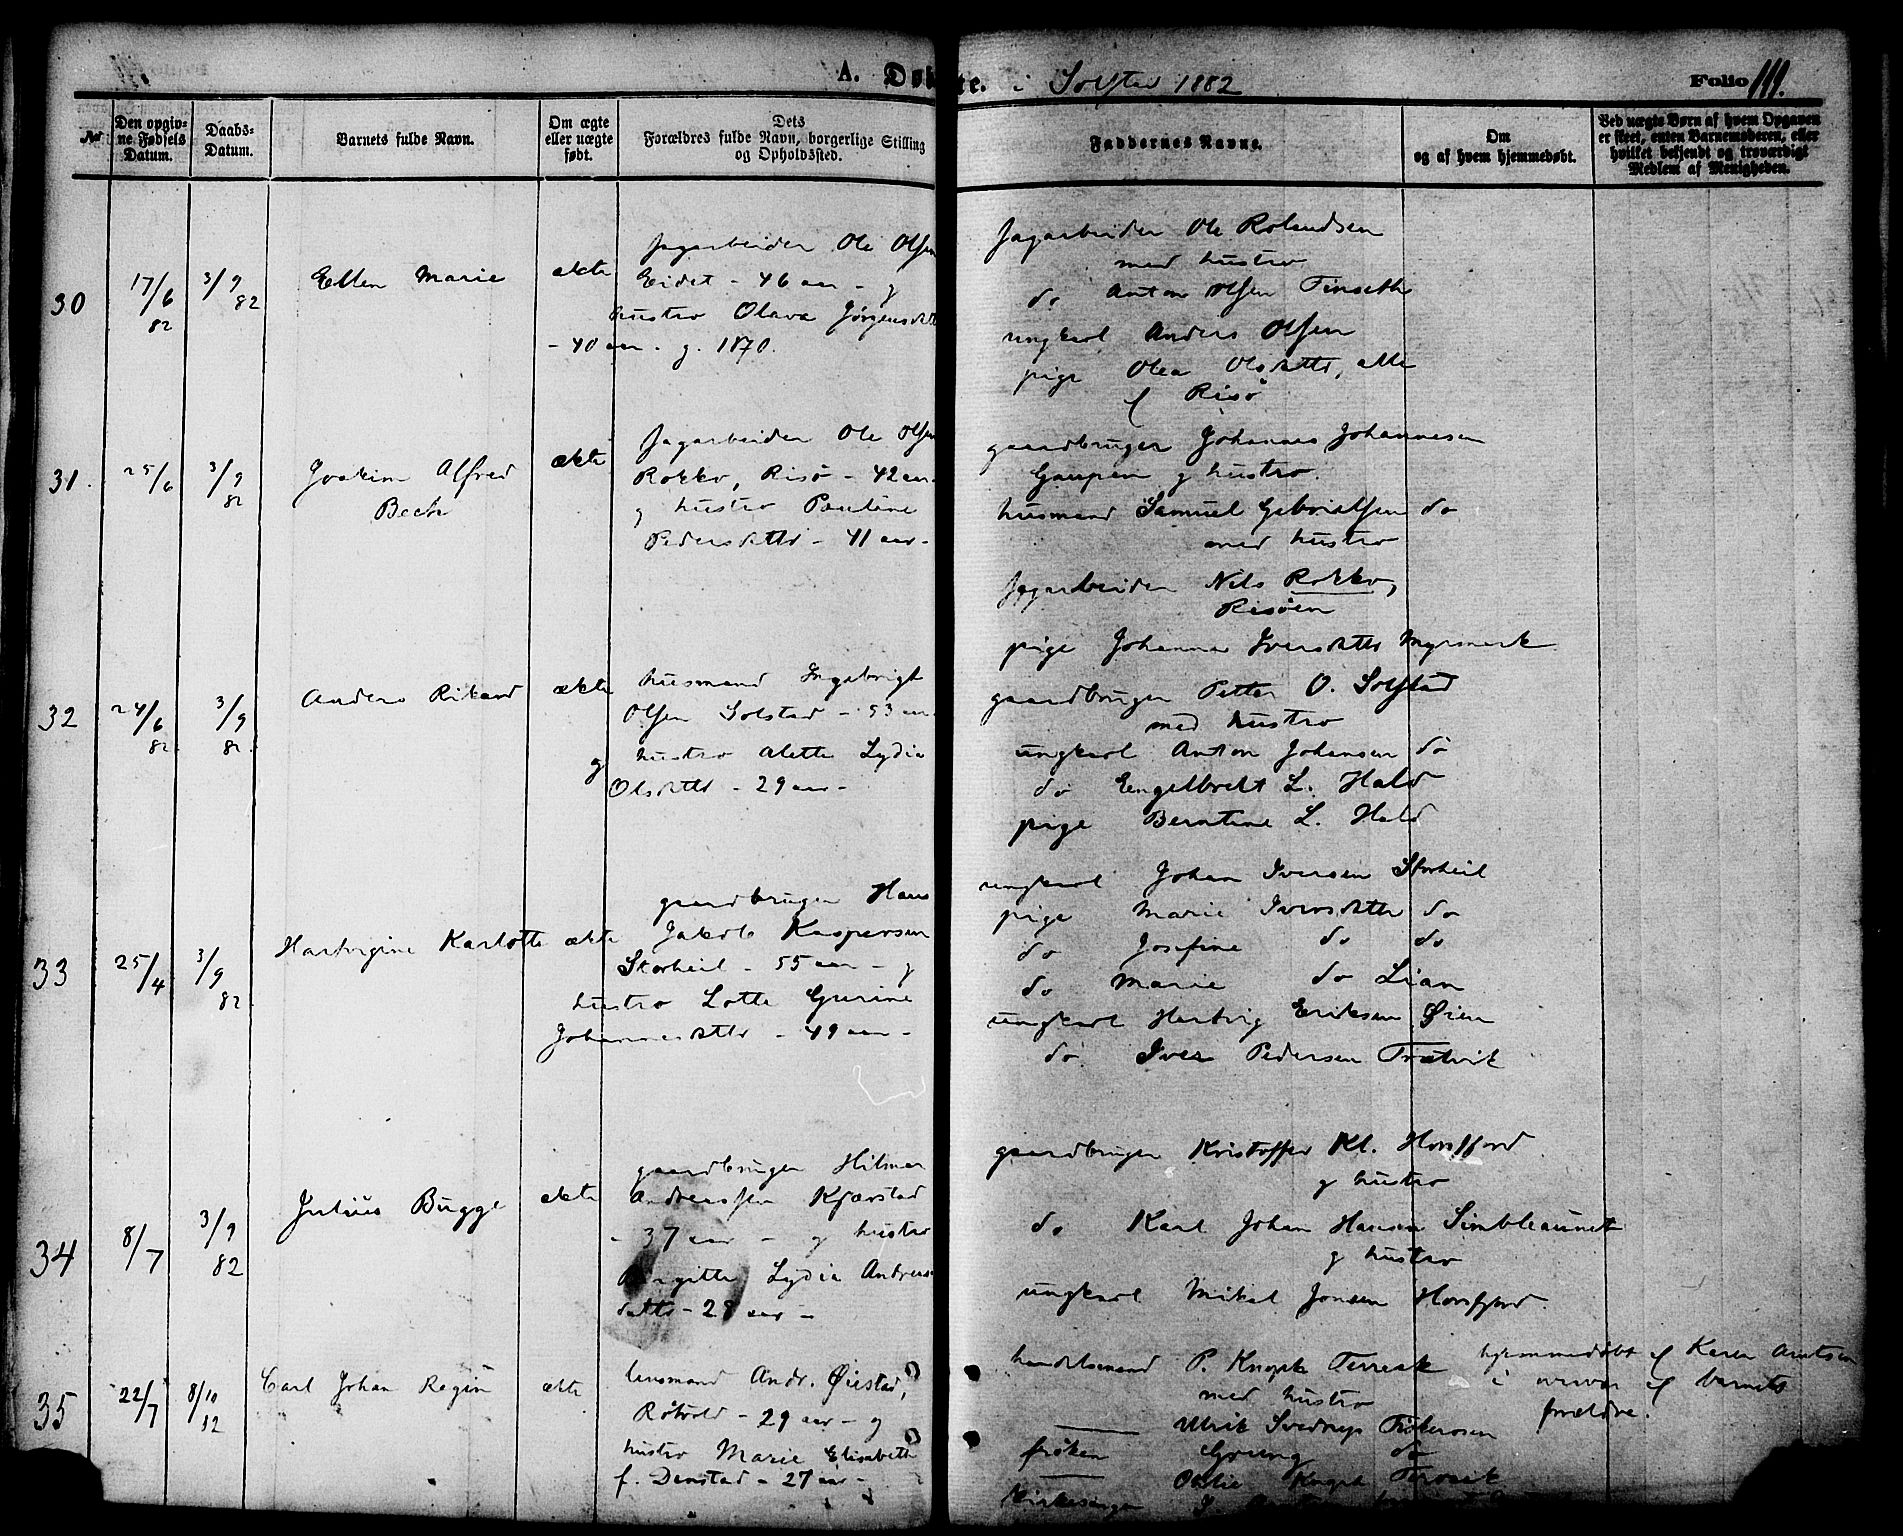 A. Døbte. i Solstad 1882 Folio 111.
No
Den opgivne Fødsels Datum.
Daabs-Datum.
Barnets fulde Navn.
Om ægte eller uægte født.
Dets Forældres fulde Navn, borgerlige Stilling og Opholdssted.
Faddernes Navne.
Om og af hvem hjemmedøbt.
Ved uægte Børn af hvem Opgaven er skeet, enten Barnemoderen, eller hvilket bekjendt og troværdigt Medlem af Menigheden.
30
17/6 82
3/9 82
Ellen Marie
ekte
Jagarbeider Ole Olsen
Eidet - 46 aar - g
hustro Olava Jørgensdttr
- 40 aar - g. 1870.
Jagarbeider Ole Rolandsen
med hustro
do Anton Olsen Finseth
ungkarl Anders Olsen
pige Olea Olsdttr, alle
f Risö
31.
25/6
3/9 82
Joakim Alfred
Bech
ækte
Jagarbeider Ole Olsen
Rokkv, Risö - 42 aar -
g hustro Pauline
Pedersdttr - 41 aar -
gaardbruger Johannes Johannesen
Gaupen g hustro.
husmand Samuel Gabrielsen do
med hustro
Jagarbeider Nils Rokkv,
Risöen
pige Johanna Iversdttr Myrmark
32
24/6 82
3/9 82.
Anders Rikard
ækte
husmand Ingebrigt
Olsen Solstad - 53 aar -
g hustro Alette Lydia
Olsdttr - 29 aar -
gaardbruger Petter O. Solstad
med hustro
ungkarl Anton Johansen do
do Engelbrekt L. Hald
pige Berntine L. Hald
33
25/4
3/9 82
Hartvigine Karlotte
ækte
gaardbruger Hans
Jakob Kaspersen
Storheil - 55 aar - g
hustro Lotte Gurine
Johannesdttr - 49 aar -
ungkarl Johan Iversen Storheil
pige Marie Iversdttr do
do Josefine do do
do Marie do Lian
ungkarl Hartvig Eriksen Øien
do Iver Pedersen Trætvik
34
8/7
3/9 82
Julius Bugge
ekte
gaardbruger Hilmar
Andreassen Kjærstad
- 37 aar - g hustro
Birgitte Lydia Andreas
datter - 28 aar -
gaardbruger Kristoffer Kl. Horsfjord
g hustro
do Karl Johan Hansen Simbleaunet
g hustro
ungkarl Mikal Jonsen Horsfjord.
35
22/7
8/10 82
Carl Johan Regin
ækte
lensmand Andr. Øiestad,
Röthold - 29 aar - g
hustro Marie Elisabeth
f. Denstad - 27 aar -
handelsmand P. Knoph Terraak
med hustro
Ulrik Svedrup
fröken Grung do
Othlie Knoph Terraak
Kirkesanger
hjemmedöbt f Karen Arntsen
i overvær f barnets
forældre.